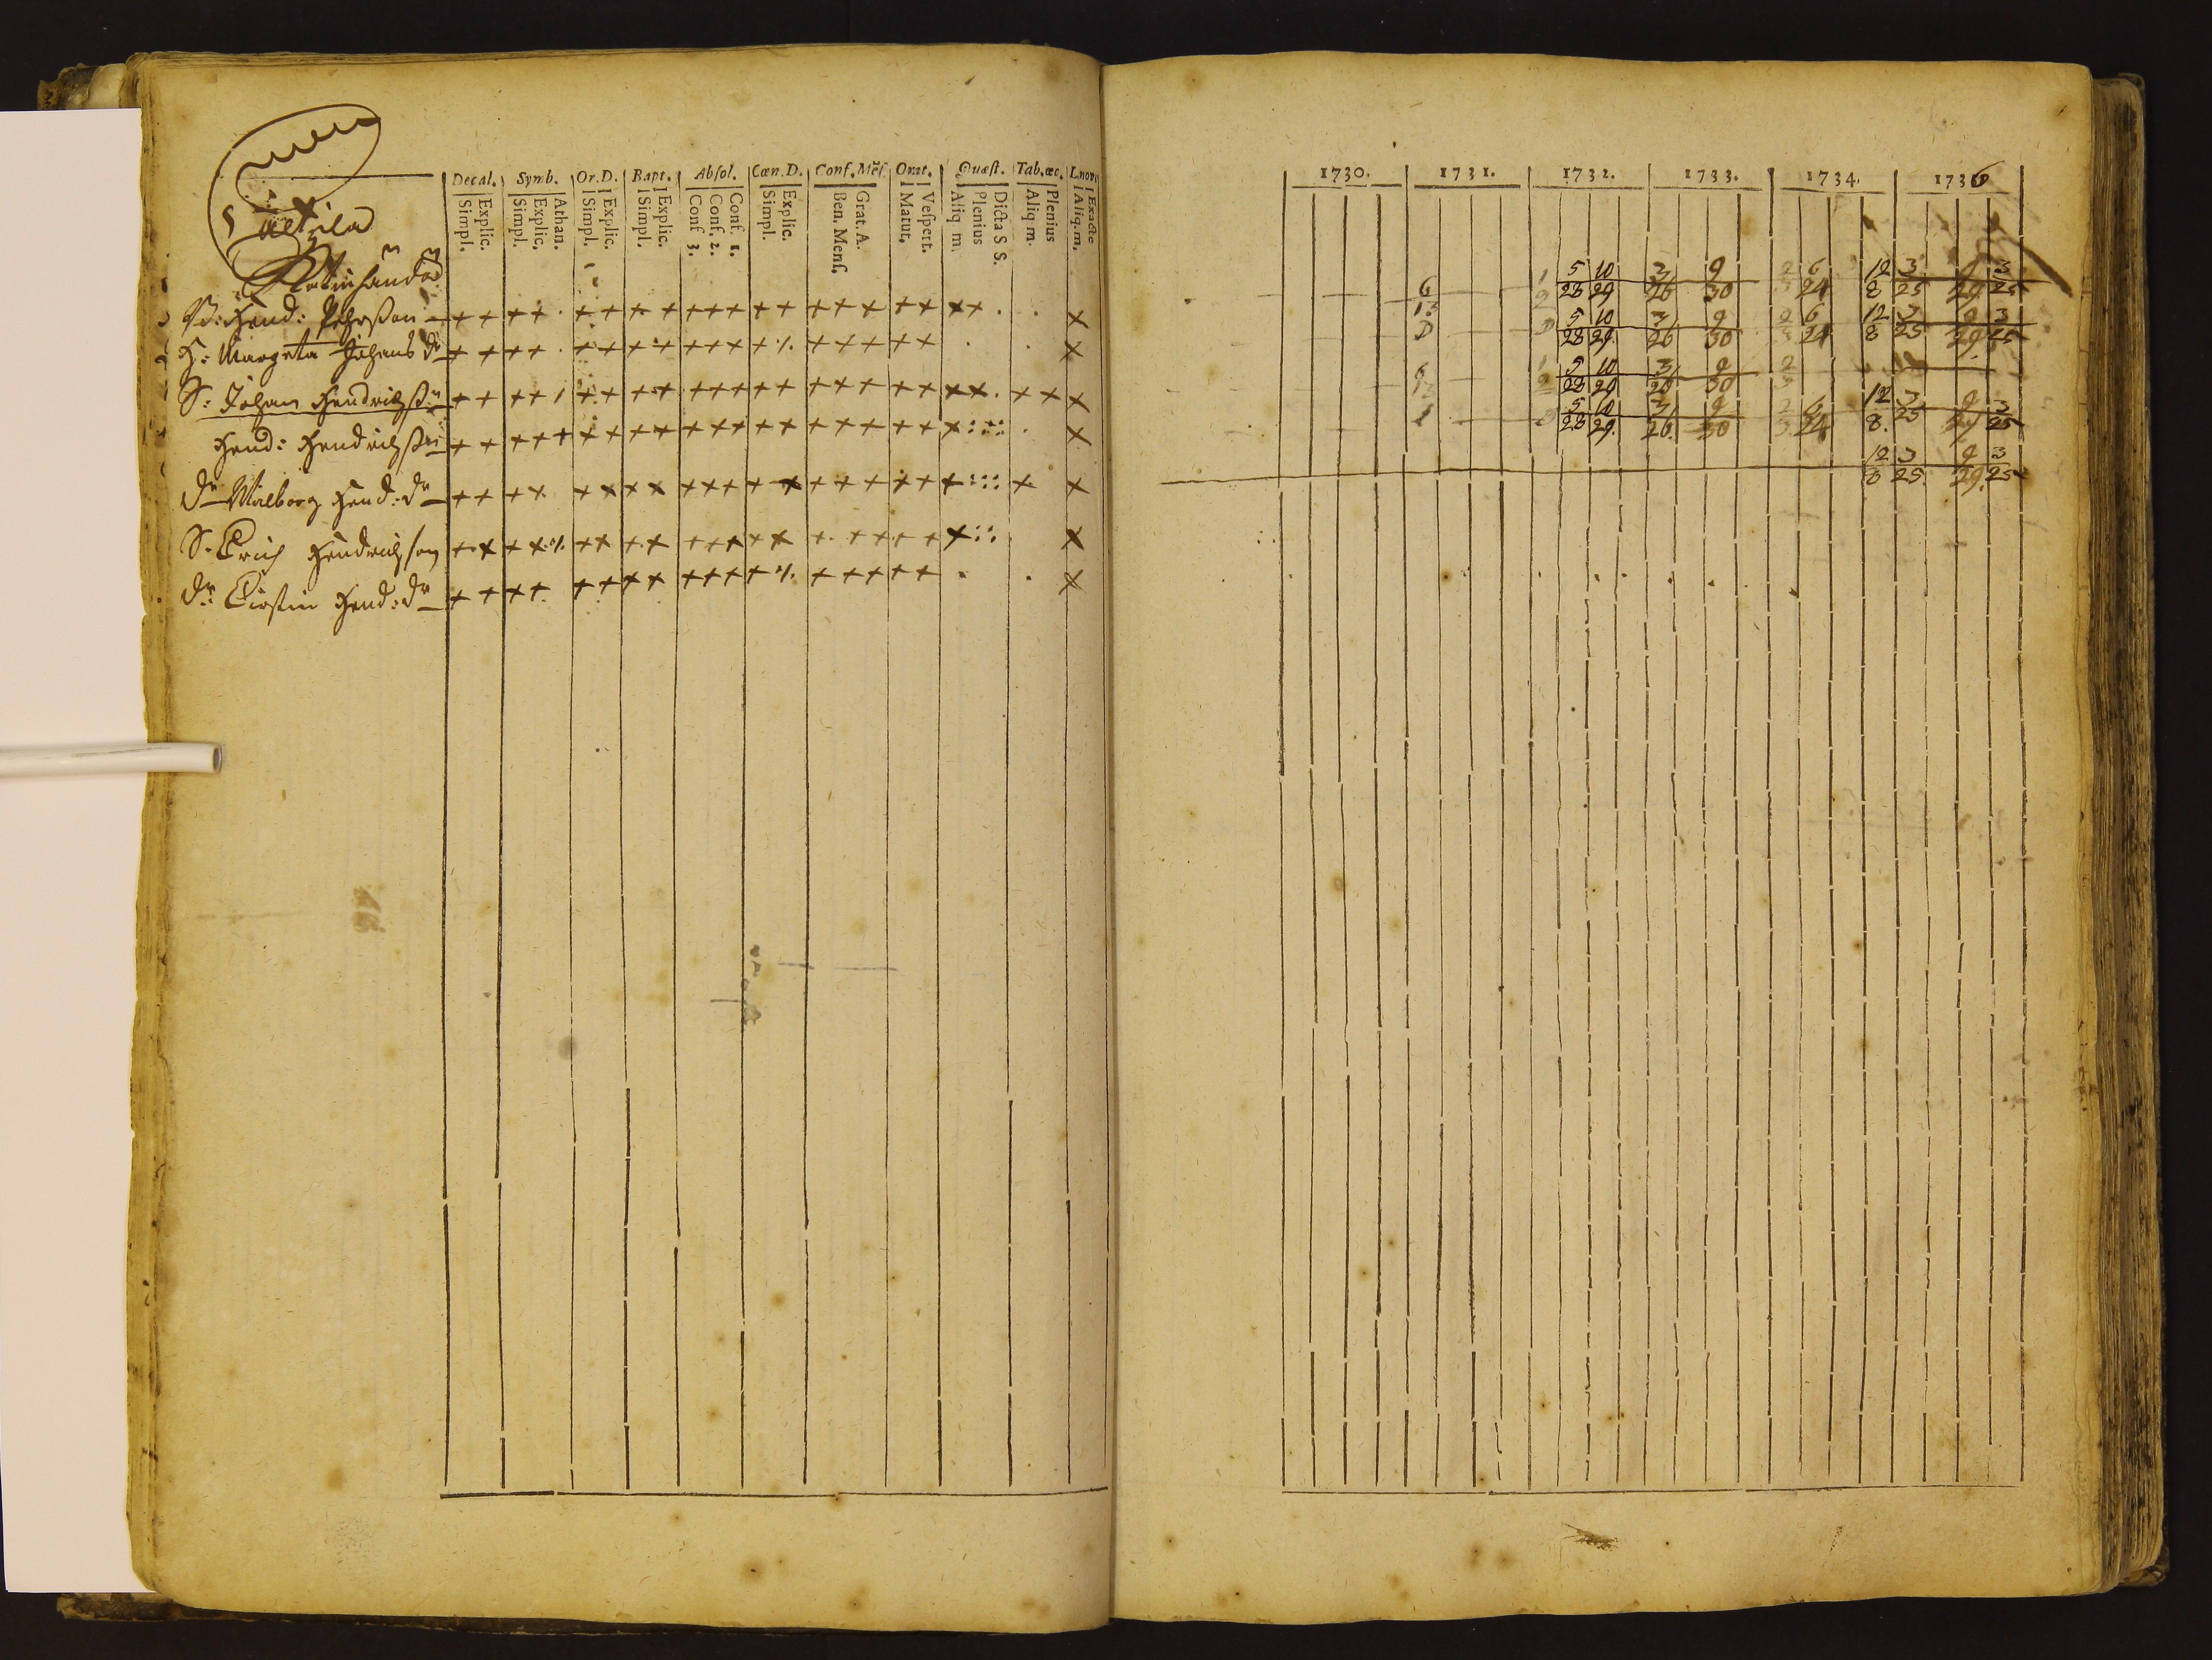 Decal. Symb. Or.D. Bapt. Absol. Cœn.D. Conf. Mẽs. Orat. Quæst. Tab.œc. L.nov.
Simpl. Explic. Simpl. Explic. Athan. Simpl. Explic. Simpl. Explic. Conf 3. Conf. 2. Conf. 1. Simpl. Explic. Ben. Mens. Grat. A. Matut. Vespert. Aliq m. Plenius Dicta S S. Aliq m. Plenius Aliq. m. Exacte
B: Hend: Pehrsson
H: Margeta Johans dr
S: Johan Hendrichss:n
Hend: Hendrichss:n
dr Walborg Hend: dr
S. Erich Hendrichson
dr: Cirstin Hend: dr
1730. 1731. 1732. 1733. 1734. 1736
6 1 5 10 3 9 2 6 12 3 9 3
13 2 28 29 26 30 3 24 8 25 29 25
5 10 3 9 2 6 12 3 9 3
28 29. 26 30 3 24 8 25 29 25
6 1 5 10 3 9 2
13 2 28 29 26 30 3
5 10 3 9 2 6 12 3 9 3
28 29. 26. 30 3 24 8. 25 29 25
12 3 9 3
8 25. 29. 25